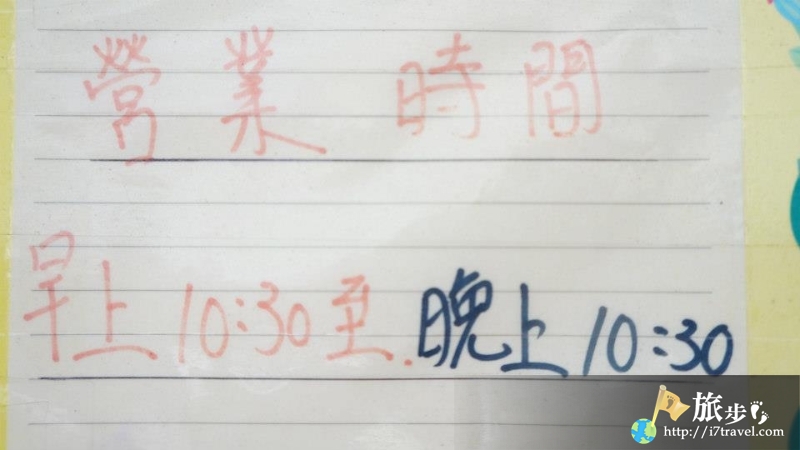 營業時間
早上10:30至.晚上10:30
旅步
http://i7travel.com